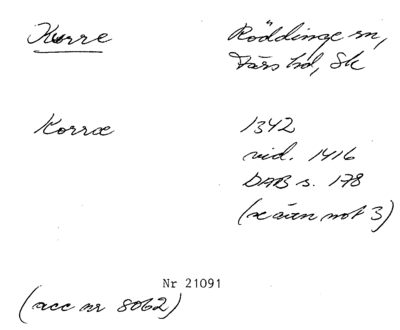 Korre
Röddinge sn,
Färs hd, Sk
Korræ
1342
vid. 1416
DAB s. 178
(se även not 3)
Nr 21091
(acc nr 8062)